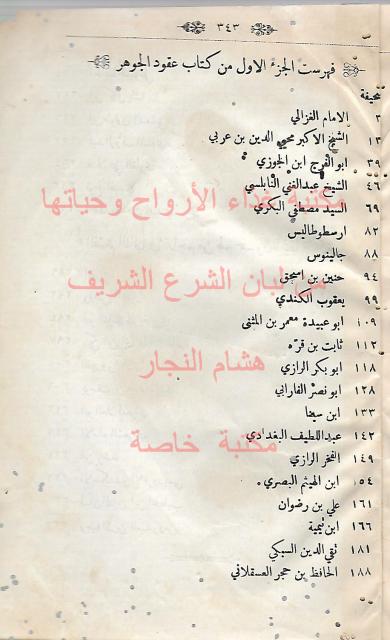 ٣٤٣
فهرست الجزء الاول من كتاب عقود الجوهر
صحيفة
٣ الامام الغزالي
١٣ الشيخ الاكبر محيي الدين بن عربي
٣٩ ابو الفرج ابن الجوزي
٤٦ الشيخ عبدالغني النابلسي
مكتبة غذاء الأرواح وحياتها
٦٩ السيد مصطفى البكري
٨٢ ارسطوطاليس
٨٨ جالينوس
٩٤ حنين بن اسحق
من لبان الشرع الشريف
٩٩ يعقوب الكندي
١٠٩ ابو عبيدة معمر بن المثنى
١١٢ ثابت بن قره
هشام النجار
١١٨ ابو بكر الرازي
١٢٨ ابو نصر الفارابي
١٣٣ ابن سينا
١٤٢ عبداللطيف البغدادي
مكتبة خاصة
١٤٩ الفخر الرازي
١٥٤ ابن الهيثم البصري
١٦١ علي بن رضوان
١٦٦ ابن تيمية
١٨١ تقي الدين السبكي
١٨٨ الحافظ بن حجر العسقلاني